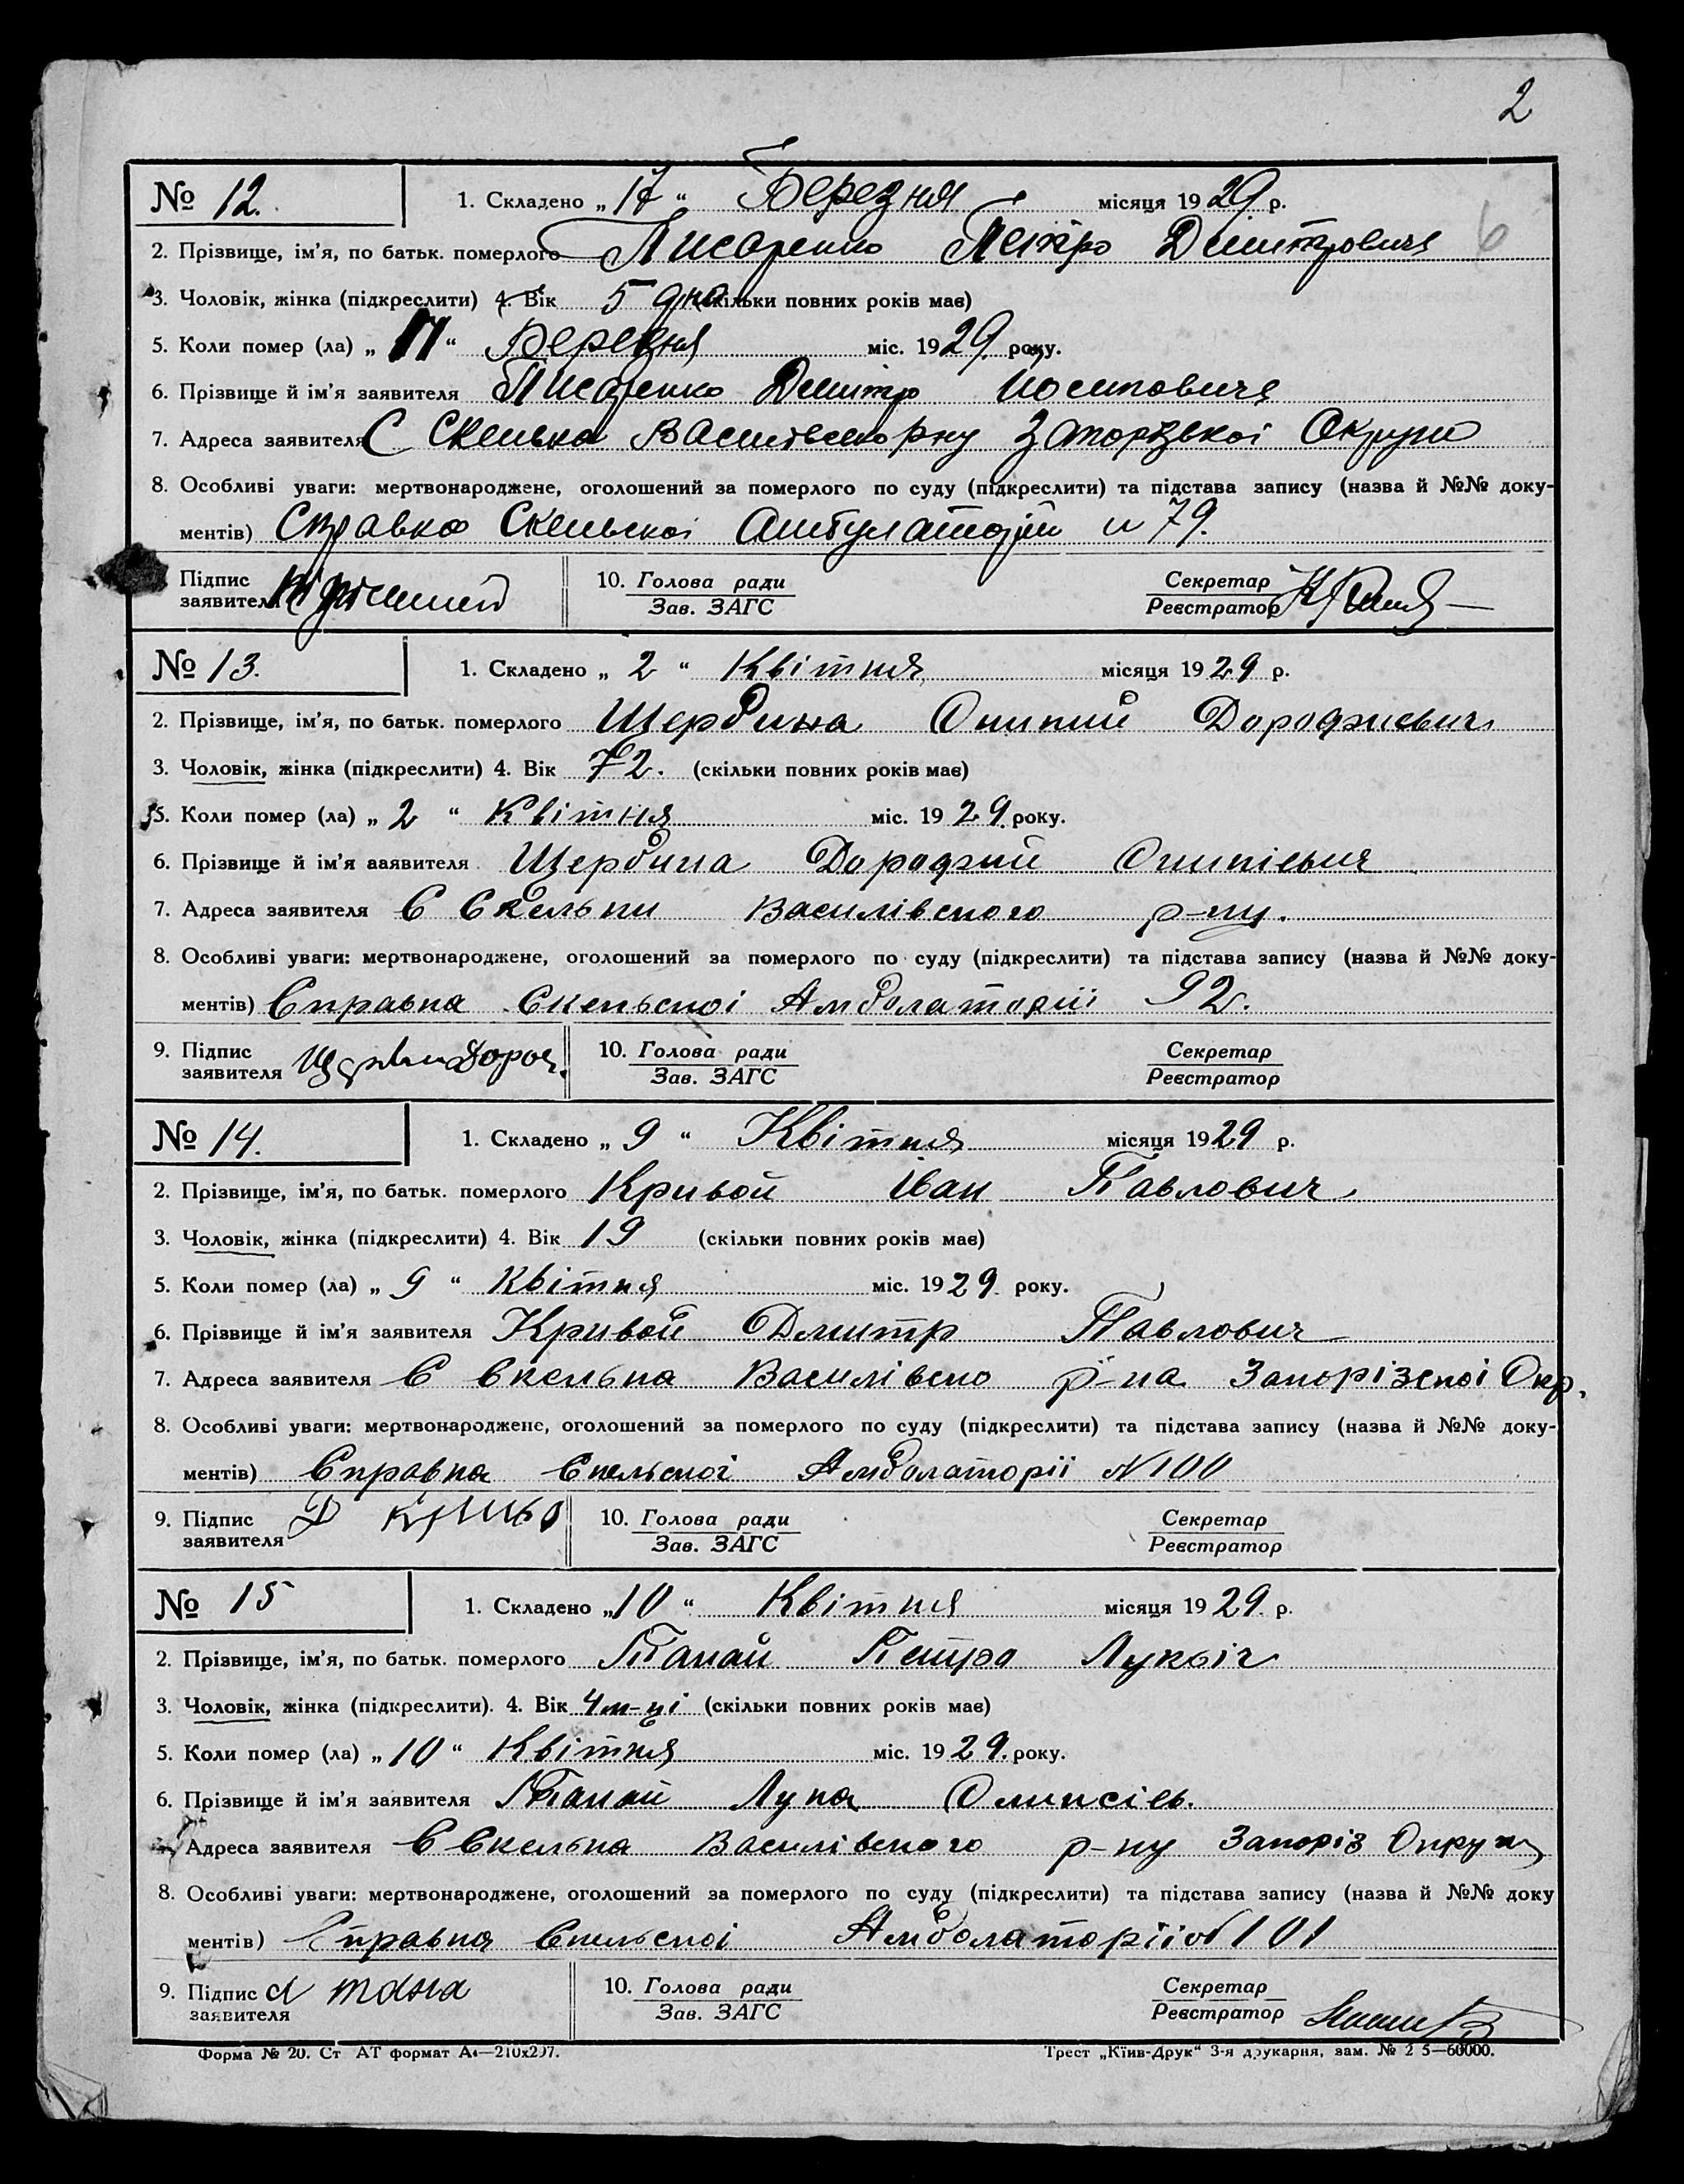 2
№ 12. 1. Складено „ 17 “ Березня місяця 1929 р.
6
2. Прізвище, ім'я, по батьк. померлого Писаренко Петро Дмитрович
3. Чоловік, жінка (підкреслити) 4. Вік 5 дня (скільки повних років має)
5. Коли помер (ла) „ “ Березня міс. 1929. року.
6. Прізвище й ім'я заявителя Писаренко Дмитро Йосипович
7. Адреса заявителя С Скелька рну Округи
8. Особливі уваги: мертвонароджене, оголошений за померлого по суду (підкреслити) та підстава запису (назва й №№ доку-
ментів) Справка Скельскої Амбулаторії н 79.
Підпис заявителя 10. Голова ради Зав. ЗАГС Секретар Реєстратор
№ 13. 1. Складено „ 2 “ Квітня місяця 1929 р.
2. Прізвище, ім'я, по батьк. померлого Щербина Дорофиевич
3. Чоловік, жінка (підкреслити) 4. Вік 72. (скільки повних років має)
5. Коли помер (ла) „ 2 “ Квітня міс. 1929. року.
6. Прізвище й ім'я ааявителя Щербина Дорофий
7. Адреса заявителя С Скельки Василівского р-ну.
8. Особливі уваги: мертвонароджене, оголошений за померлого по суду (підкреслити) та підстава запису (назва й №№ доку-
ментів) Справка Скельскої Амболаторії 92.
9. Підпис заявителя 10. Голова ради Зав. ЗАГС Секретар Реєстратор
№ 14. 1. Складено „ 9 “ Квітня місяця 1929 р.
2. Прізвище, ім'я, по батьк. померлого Кривой Іван Павлович
3. Чоловік, жінка (підкреслити) 4. Вік 19 (скільки повних років має)
5. Коли помер (ла) „ 9 “ Квітня міс. 1929 року.
6. Прізвище й ім'я заявителя Кривой Дмитр Павлович
7. Адреса заявителя С Скелька Василівско р-на Запорізскоі Окр.
8. Особливі уваги: мертвонароджене, оголошений за померлого по суду (підкреслити) та підстава запису (назва й №№ доку-
ментів) Справка Скельскоі Амболаторії N 100
9. Підпис заявителя Д 10. Голова ради Зав. ЗАГС Секретар Реєстратор
№ 15 1. Складено „10 “ Квітня місяця 1929. р.
2. Прізвище, ім'я, по батьк. померлого Танай Петро Лукъіч
3. Чоловік, жінка (підкреслити). 4. Вік 4 м-ці (скільки повних років має)
5. Коли помер (ла) „ 10 “ Квітня міс. 1929. року.
6. Прізвище й ім'я заявителя Танай Лука
Адреса заявителя С Скелька Василівского р-ну Запоріз
8. Особливі уваги: мертвонароджене, оголошений за померлого по суду (підкреслити) та підстава запису (назва й №№ доку
ментів) Справка Скельскоі Амболаторіі N 101
9. Підпис заявителя 10. Голова ради Зав. ЗАГС Секретар Реєстратор
Форма № 20. Ст АТ формат А4—210х297. Трест „Київ-Друк“ 3-я друкарня, зам. № 2 5—60000.